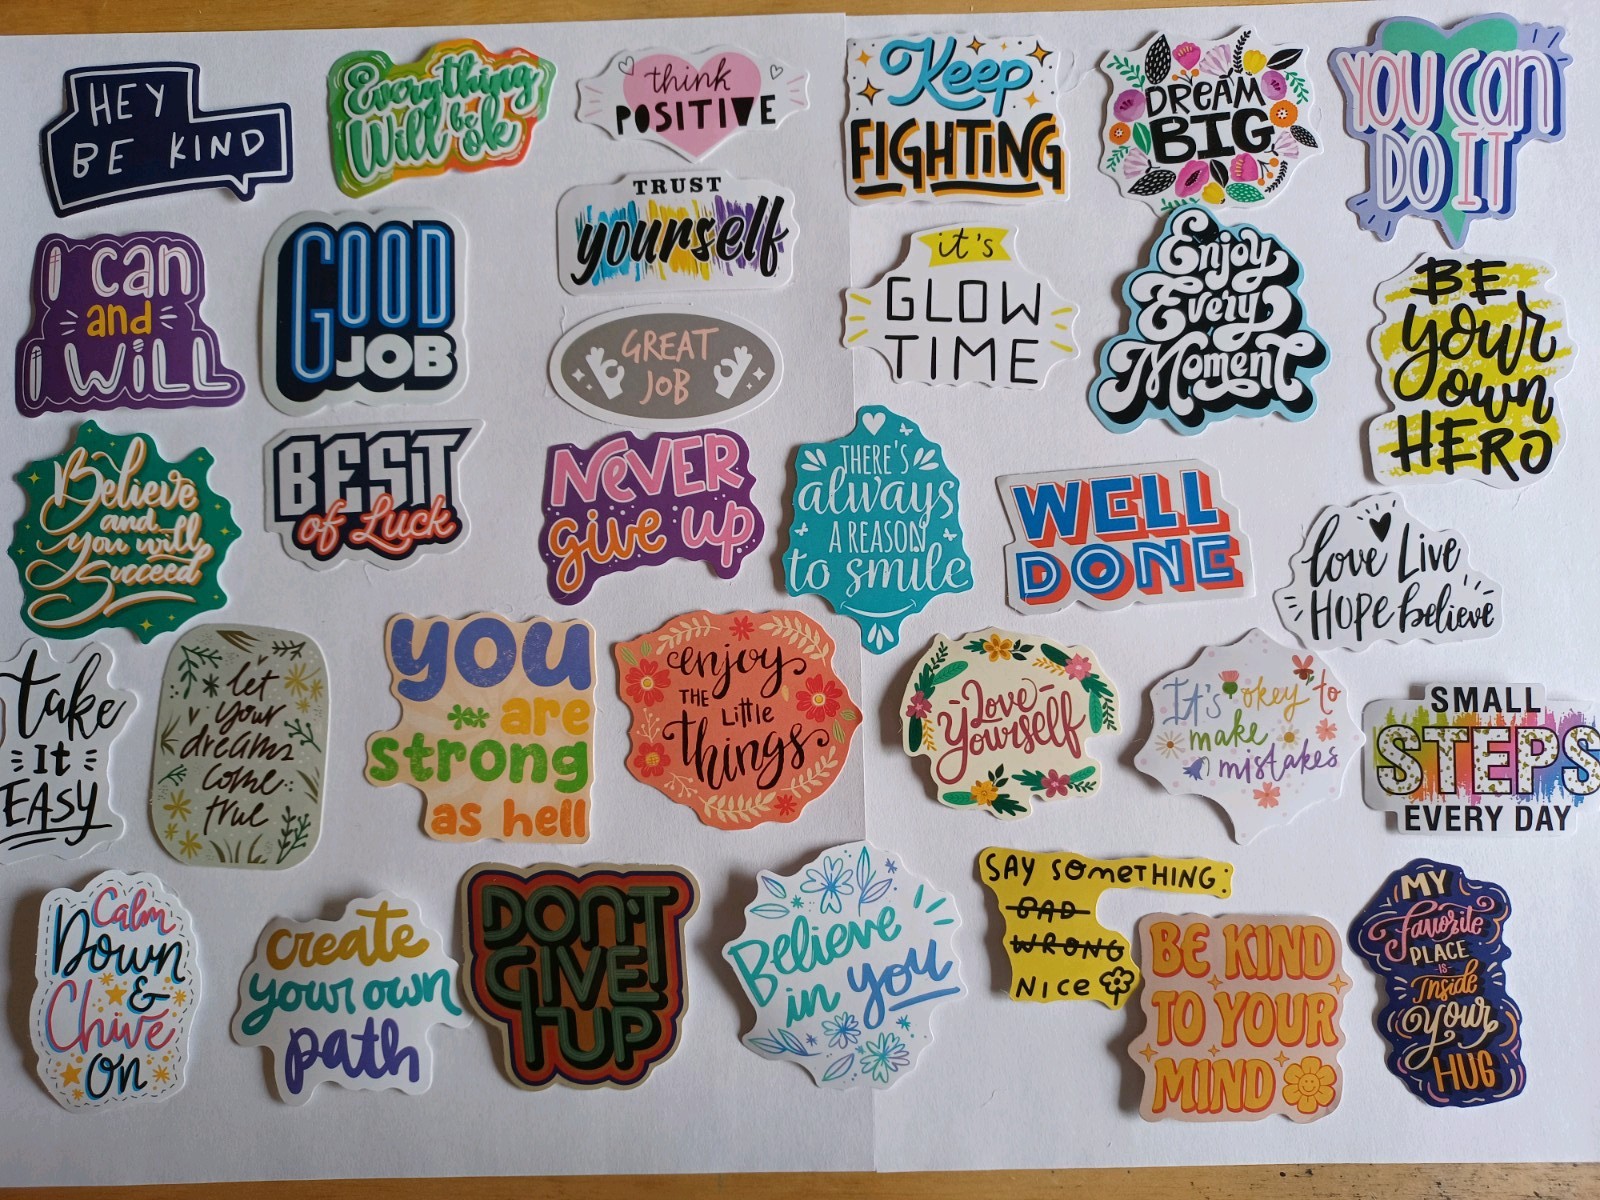 HEY
BE KIND
Everything
Will be ok
think
POSITIVE
Keep
FIGHTING
DREAM
BIG
YOU Can
DO IT
I can
and
I WILL
GOOD
JOB
TRUST
yourself
GREAT
JOB
it's
GLOW
TIME
Enjoy
Every
Moment
BE
your
own
HERO
Believe
and
you will
Succeed
BEST
of Luck
NeVER
give up
THERE'S
always
A REASON
to smile
WELL
DONE
love Live
HOPE believe
take
It
EASY
let
your
dreams
come
true
YOU
are
strong
as hell
enjoy
THE Little
things
Love
Yourself
It's okey to
make
mistakes
SMALL
STEPS
EVERY DAY
Calm
Down
&
Chive
On
create
your own
path
DON'T
GIVE
UP
Believe
in you
SAY SOMETHING:
BAD
WRONG
NICE
BE KIND
TO YOUR
MIND
MY
favorite
PLACE
IS
Inside
Your
HUG